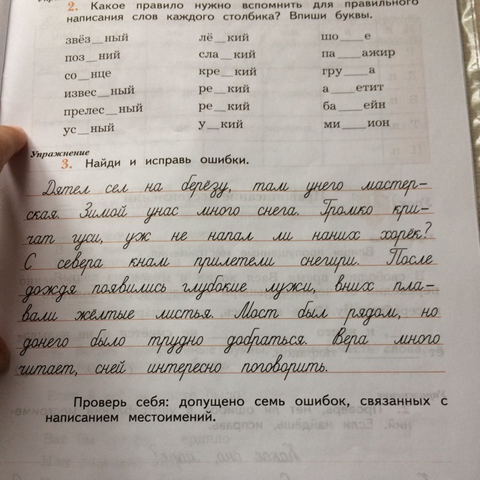 2. Какое правило нужно вспомнить для правильного
написания слов каждого столбика? Впиши буквы.
звёз__ный лё__кий шо___е
поз__ний сла__кий па___ажир
со__нце кре__кий гру___а
извес__ный ре__кий а___етит
прелес__ный ре__кий ба___ейн
ус__ный у__кий ми___ион
Упражнение
3. Найди и исправь ошибки.
Дятел сел на берёзу, там унего мастер-
ская. Зимой унас много снега. Громко кри-
чат гуси, уж не напал ли наних хорёк?
С севера кнам прилетели снегири. После
дождя появились глубокие лужи, вних пла-
вали жёлтые листья. Мост был рядом, но
донего было трудно добраться. Вера много
читает, сней интересно поговорить.
Проверь себя: допущено семь ошибок, связанных с
написанием местоимений.